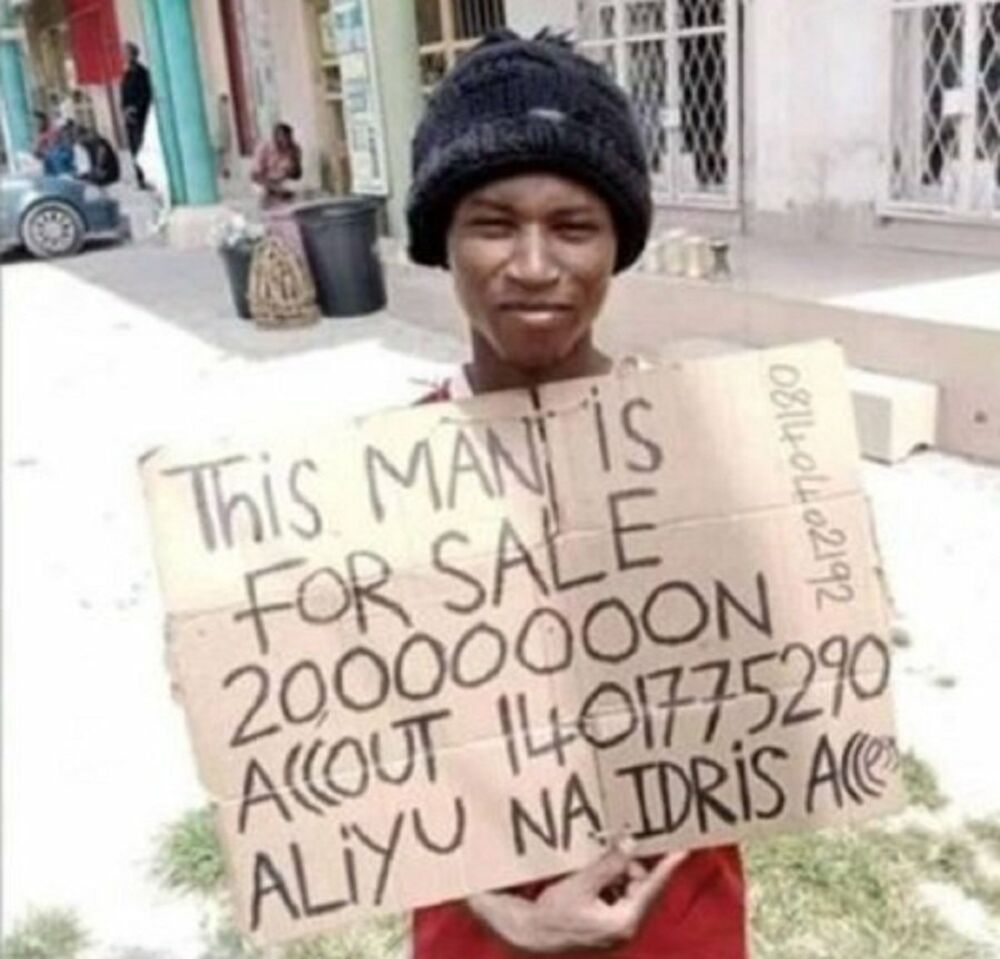 This MAN is
FOR SALE
20000000N
ACCCOUT 1401775290
ALiYU NA IDRiS
08140402192